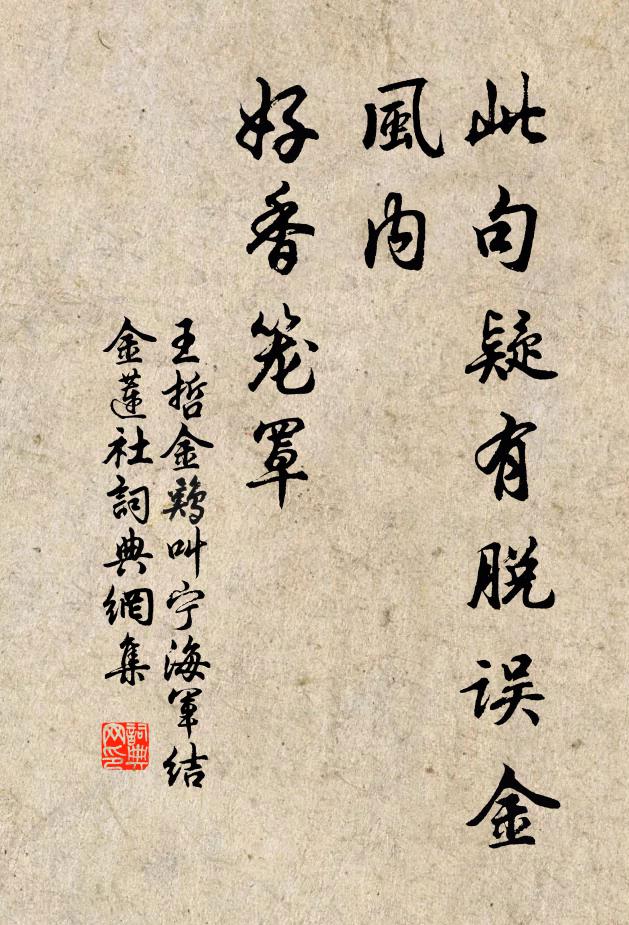 此句疑有脱误金
風内
好香笼罩
王哲金鷄叫宁海軍結
金蓮社詞典網集
詞典
网印